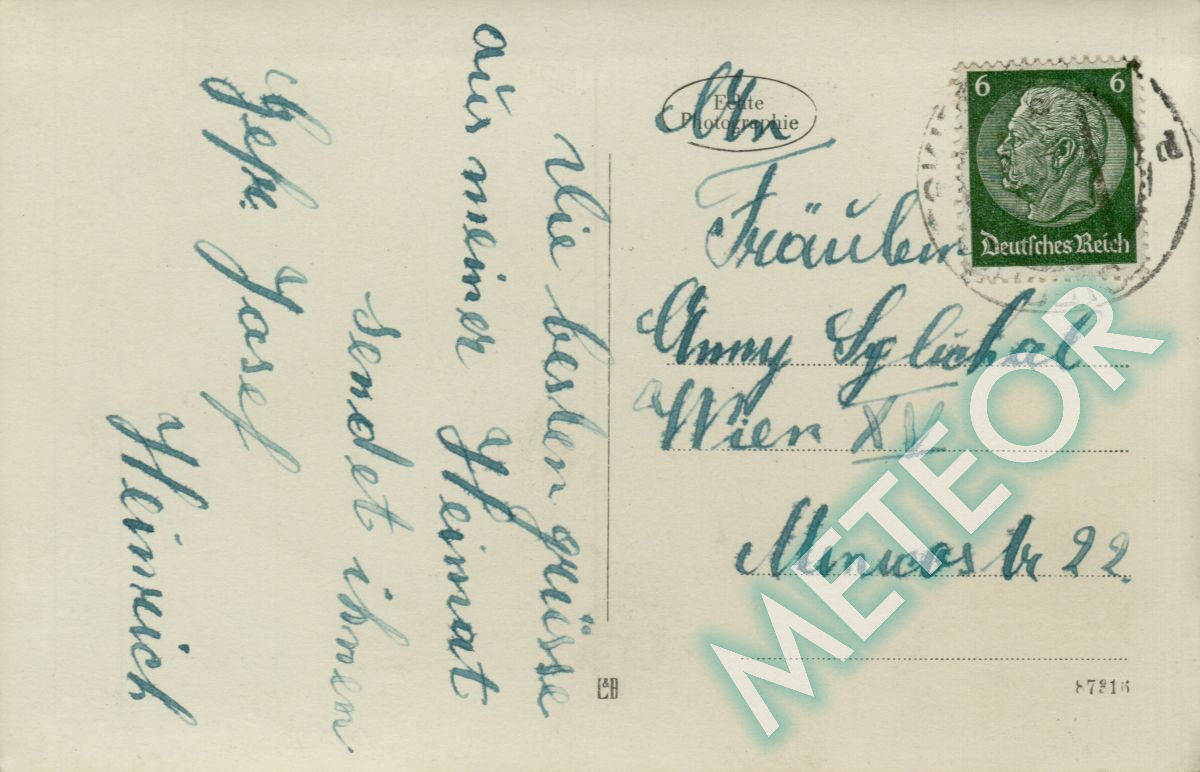 Die besten grüsse
aus meiner Heimat
sendet ihnen
Gefr. Josef
Heinrich
Echte
Photographie
An
Fräulein
Anny
Wien XV
22
6 6
Deutsches Reich
L&B
87316
METEOR